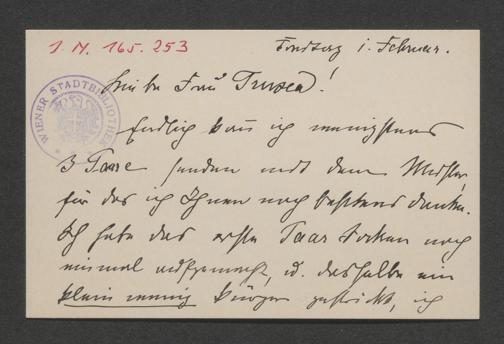 J. N. 165.253
Freitag 1. Februar.
WIENER STADTBIBLIOTHEK
Liebe Frau Trused!
Endlich kann ich wenigstens
3 Paare senden mit dem Muster,
für das ich Ihnen noch bestens danke.
Ich habe das erste Paar Socken noch
einmal aufgemacht, u. dasselbe ein
klein wenig kürzer gestrickt, ich